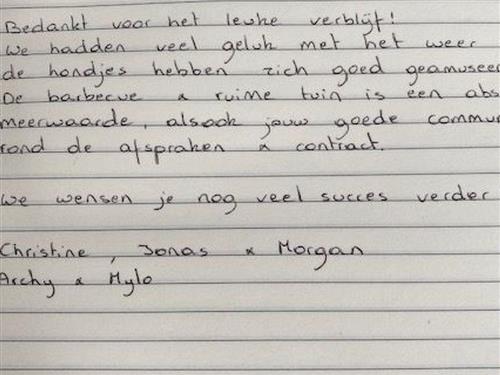 Bedankt voor het leuke verblijf!
We hadden veel geluk met het weer
de hondjes hebben zich goed geamuseer
De barbecue & ruime tuin is een abs
meerwaarde, alsook jouw goede commu
rond de afspraken & contract.
We wensen je nog veel succes verder
Christine, Jonas & Morgan
Archy & Mylo